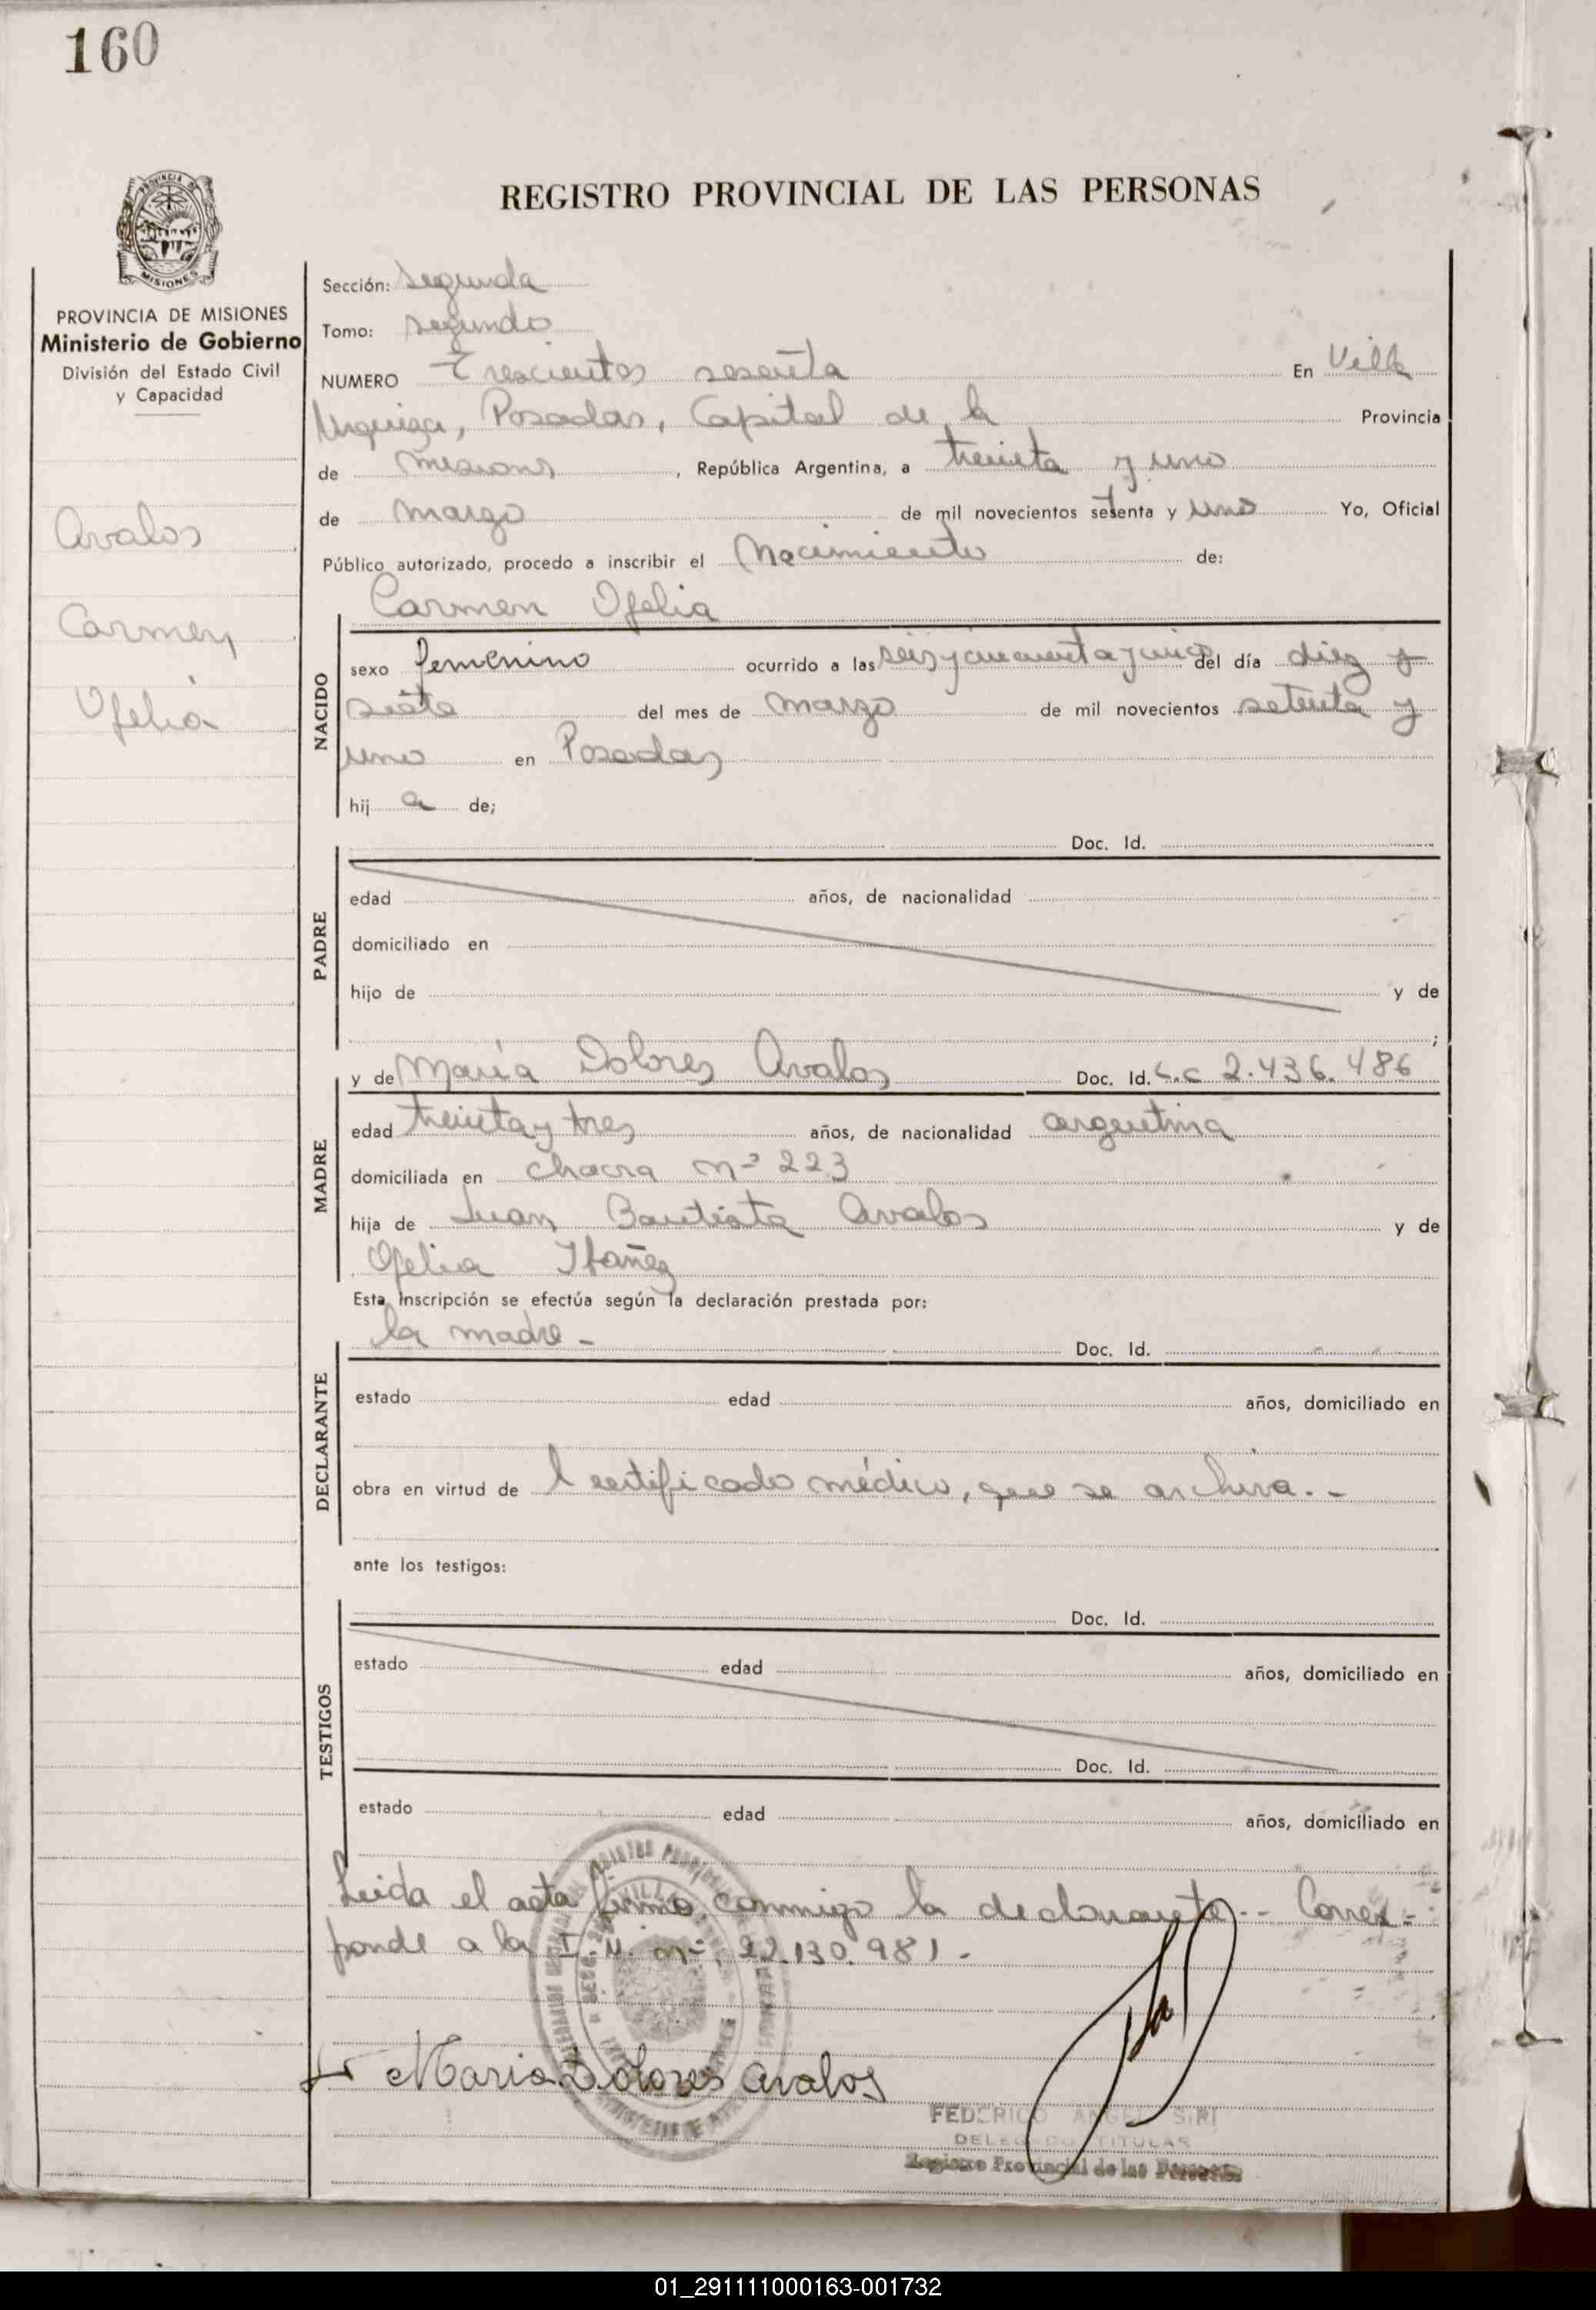 160
REGISTRO PROVINCIAL DE LAS PERSONAS
PROVINCIA DE
MISIONES
PROVINCIA DE MISIONES
Ministerio de Gobierno
División del Estado Civil
y Capacidad
Avalos
Carmen
Ofelia
Sección: Segunda
Tomo: segundo
NUMERO Trescientos sesenta En Villa
Urquiza, Posadas, Capital de la Provincia
de Misiones, República Argentina, a treinta y uno
de marzo de mil novecientos setenta y uno Yo, Oficial
Público autorizado, procedo a inscribir el Nacimiento de:
Carmen Ofelia
NACIDO
sexo femenino ocurrido a las seis y cincuenta y cinco del día diez y
siete del mes de marzo de mil novecientos setenta y
uno en Posadas
hij a de;
Doc. Id.
PADRE
edad años, de nacionalidad
domiciliado en
hijo de y de
;
y de María Dolores Avalos Doc. Id. L.C 2.436.486
MADRE
edad treinta y tres años, de nacionalidad argentina
domiciliada en chacra nº 223
hija de Juan Bautista Avalos y de
Ofelia Ibañez
Esta inscripción se efectúa según la declaración prestada por:
la madre - Doc. Id.
DECLARANTE
estado edad años, domiciliado en
obra en virtud de l certificado médico, que se archiva. -
ante los testigos:
Doc. Id.
TESTIGOS
estado edad años, domiciliado en
Doc. Id.
estado edad años, domiciliado en
Leida el acta firmó conmigo la declarante.- Corres-
ponde a la I.N. nº 22.130.981.
Maria Dolores Avalos
FEDERICO ANGEL SIRI
DELEGADO TITULAR
Registro Provincial de las Personas
01_291111000163-001732